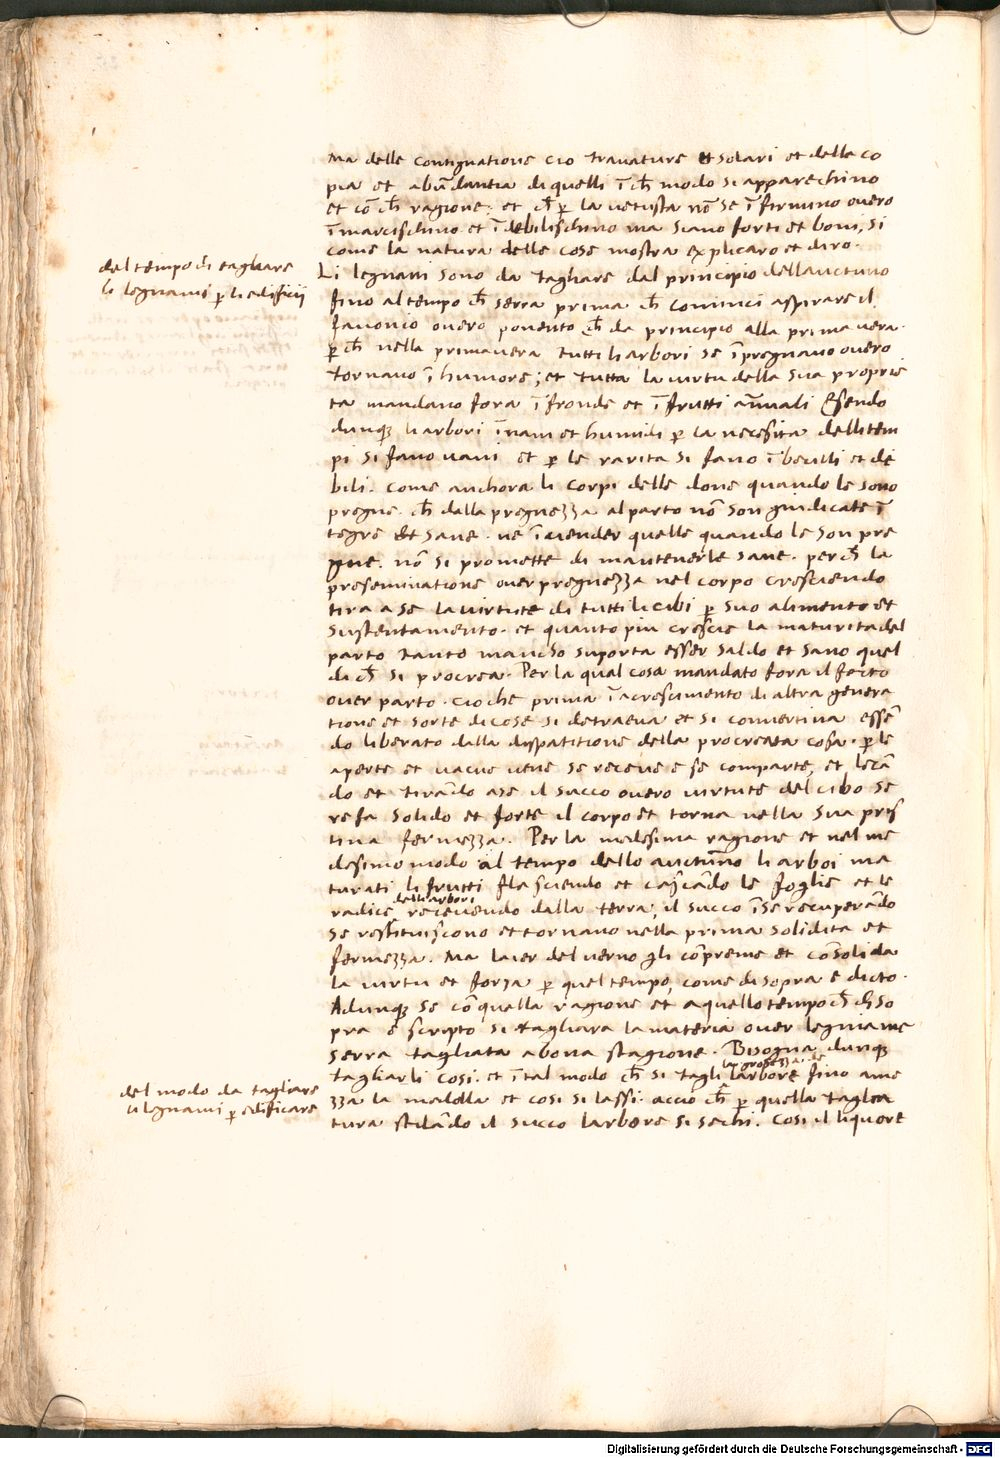 Ma delle contignatione cio travature et solari et della co
pia et abūdantia di quelli ī ch̄ modo si apparechino
et cō ch̄ ragione: et ch̄ ꝑ la vetusta nō se ī firmino overo
ī marcischino et ī debilischino ma siano forti et boni, si
come la natura delle cose mostra explicaro et diro.
del tempo di tagliare
li legnami ꝑ li edificii
Li legnami sono da tagliare dal principio dell auctuno
fino al tempo ch̄ serra prima ch̄ cominci aspirare il
favonio overo ponento ch̄ da principio alla prima vera.
ꝑ ch̄ nella primavera tutti li arbori se ī pregnano overo
tornano ī humore; et tutta la virtu della sua proprie
ta mandano fora ī fronde et ī frutti ānuali Esendo
dunqꝫ li arbori ī nani et humidi ꝑ la necesita delli tem
pi si fano vani et ꝑ le rarita si fano ī becilli et de
bili. come anchora li corpi delle done quando le sono
pregne. ch̄ dalla pregnezza al parto nō son giudicate ī
tegre et sane. ne ī vender quelle quando le son pre
gne. nō si promette di mantenerle sane. perch̄ la
preseminatione over pregnezza nel corpo cresciendo
tira a se la virtute di tutti li cibi ꝑ suo alimento et
sustentamento. et quanto piu crescie la maturita del
parto tanto mancho suporta esser saldo et sano quel
di ch̄ si procrea. Per la qual cosa mandato fora il fecto
over parto. cio che prima ī acrescimento di altra genera
tione et sorte di cose si detraeva et si convertiva essē
do liberato dalla dispatitione della procreata cosa. ꝑ le
aperte et vacue vene se receve e se comparte, et lecā
do et tirādo a se il succo overo virtute del cibo se
re fa solido et forte il corpo et torna nella sua pris
tina fermezza. Per la medesima ragione et nel me
desimo modo al tempo dello auctūno li arboi ma
turati li frutti flasciendo et cascādo le foglie et le
radice delli arbori recevendo dalla terra, il succo ī se recuperādo
se restituiscono et tornano nella prima solidita et
fermezza. Ma laier del verno gli cōpreme et cōsolida
la virtu et forza ꝑ quel tempo, come di sopra e dicto.
Adunqꝫ se cō quella ragione et a quello tempo ch̄ di so
pra e scripto si tagliara la materia over legniame
serra tagliata a bona stagione. Bisogna dunqꝫ
tagliarli cosi. et ī tal modo ch̄ si tagli la grossezza de larbore fino ame
del modo da tagliare
li legnami ꝑ edificare
zza la medolla et cosi si lassi. accio ch̄ ꝑ quella taglia
tura stilādo il succo larbore si sechi. Cosi il liquore
Digitalisierung gefördert durch die Deutsche Forschungsgemeinschaft - DFG